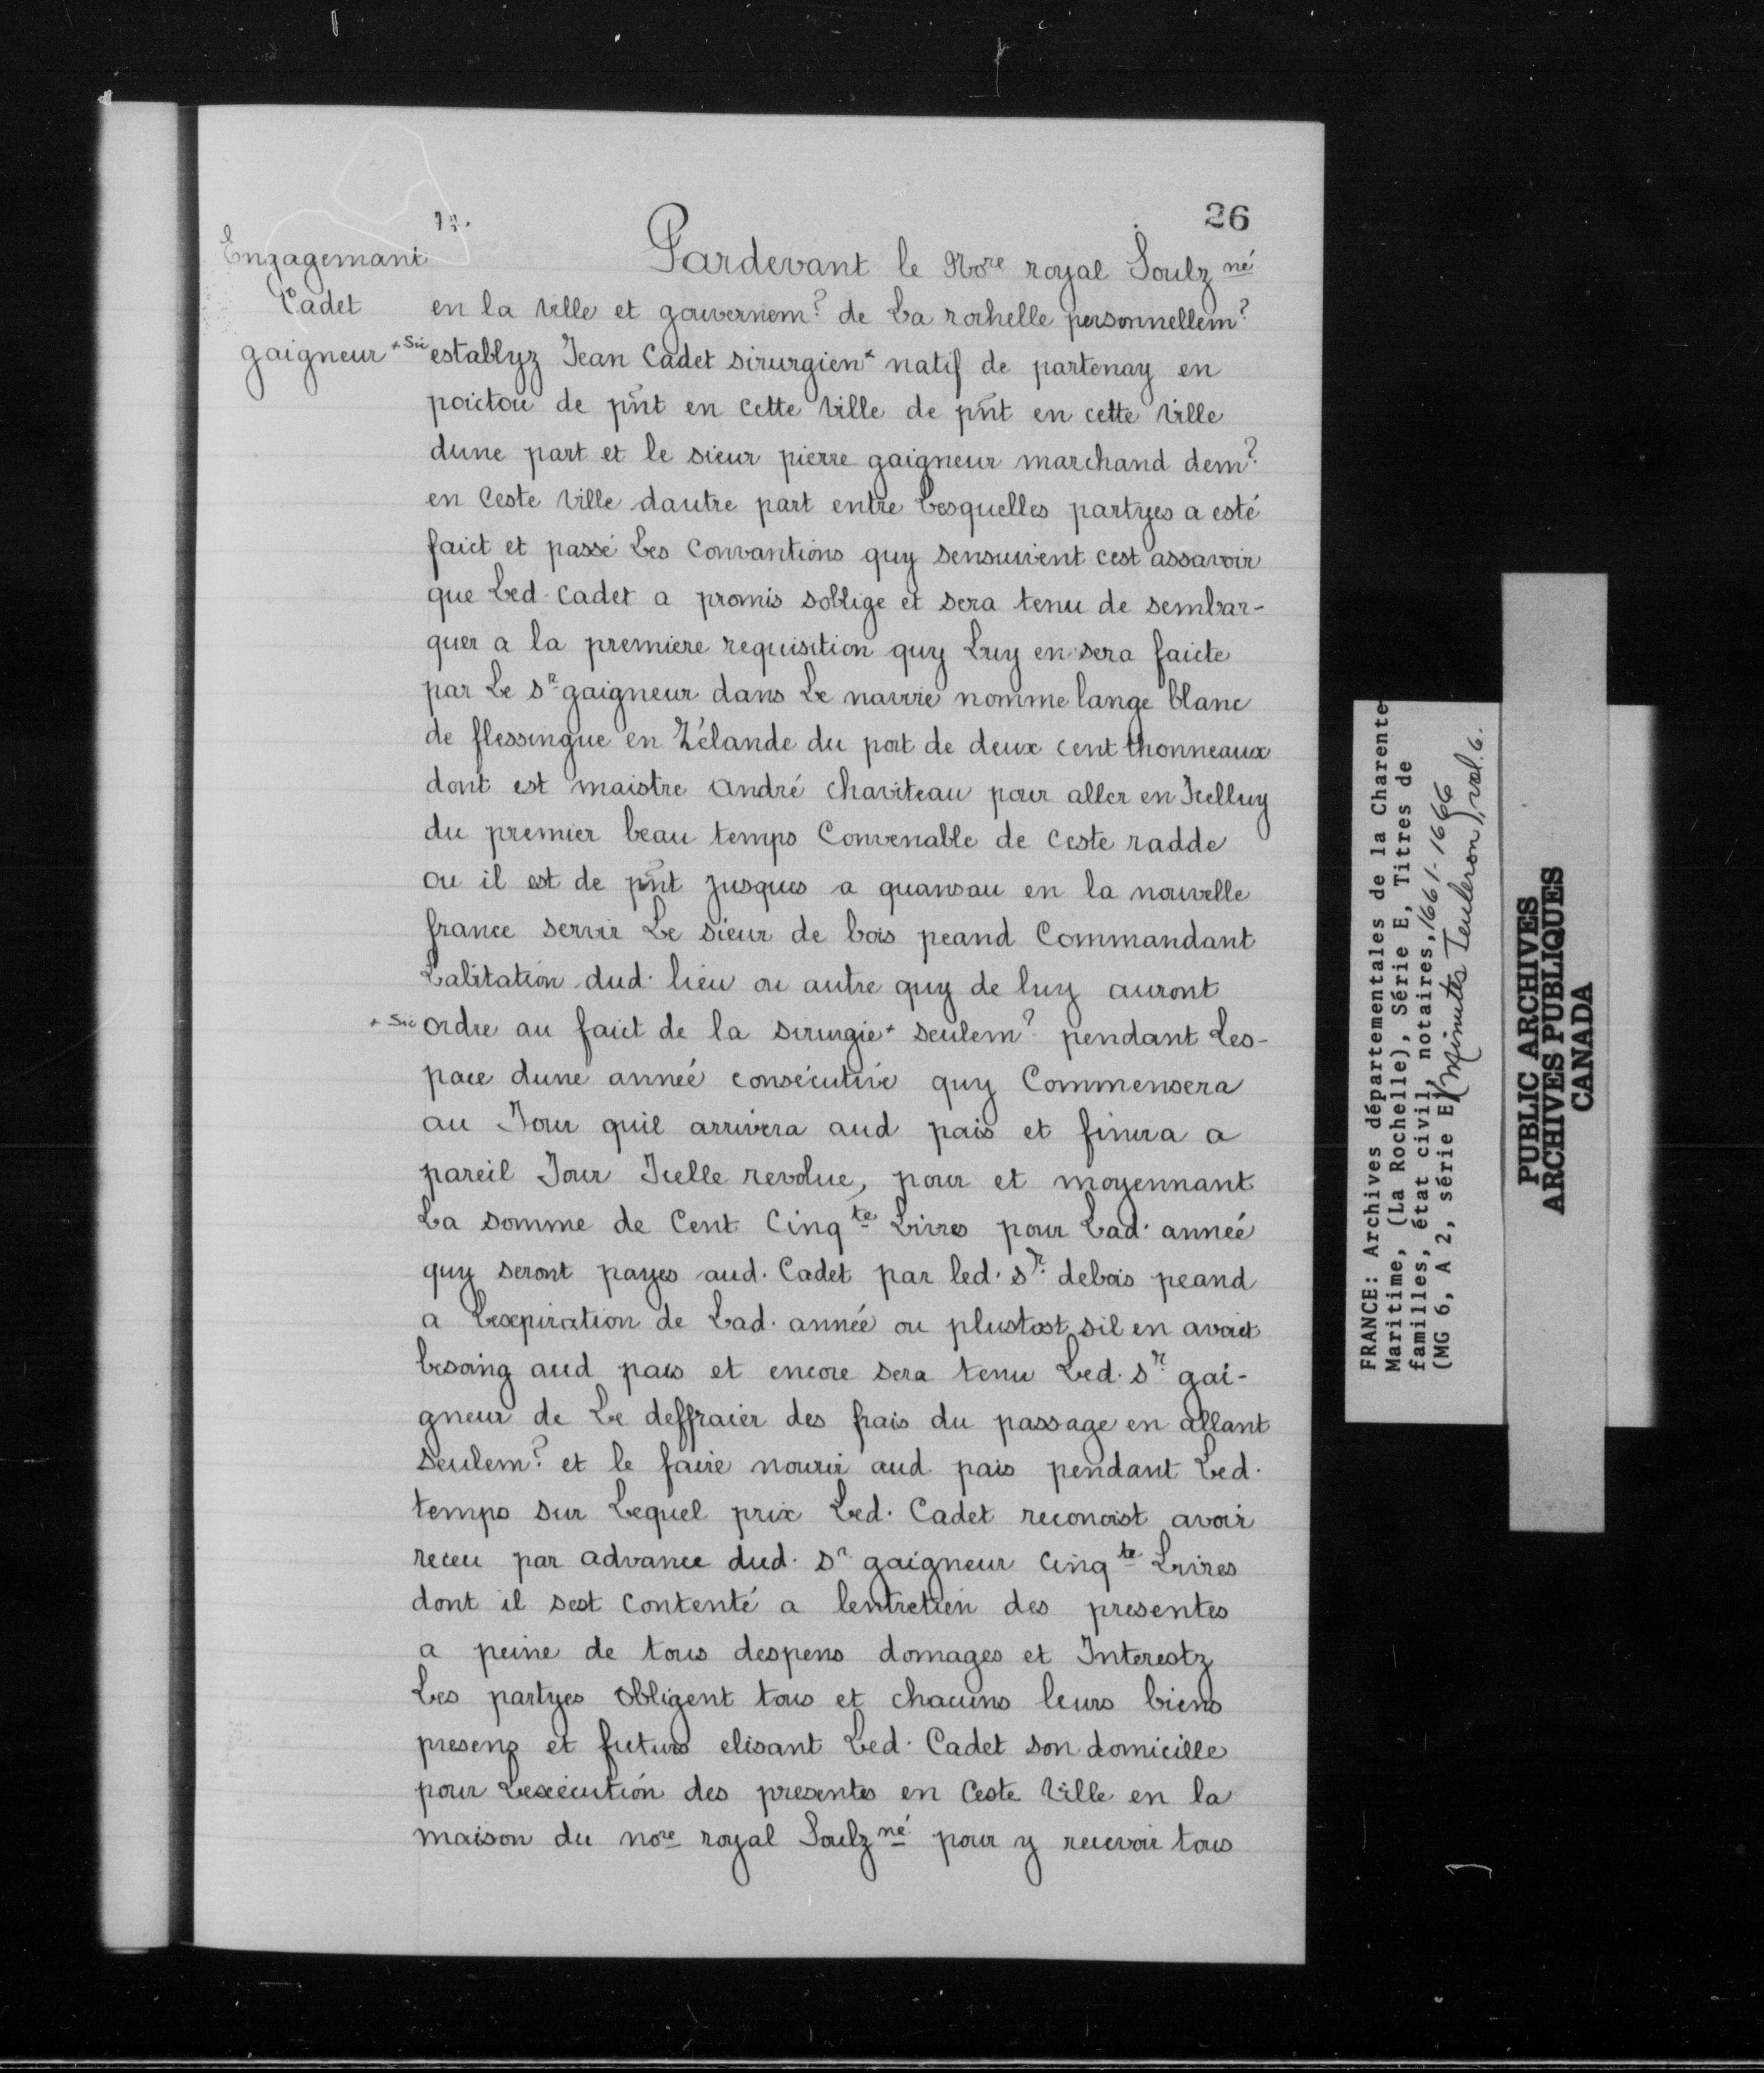 26
Engagemant
Cadet
gaigneur
Pardevant le Nore royal Soulz né
en la ville et gouvernemt de La rochelle personnellemt
+ Sic establyz Jean Cadet sirurgien+ natif de partenay en
poictou de pñt en cette ville de pñt en cette ville
dune part et le sieur pierre gaigneur marchand demt
en Ceste ville dautre part entre Lesquelles partyes a esté
faict et passé Les Convantions quy sensuivent cest assavoir
que Led. Cadet a promis soblige et sera tenu de sembar-
quer a la premiere requisition quy Luy en sera faicte
par Le sr gaigneur dans Le navire nomme lange blanc
de flessingue en Zélande du port de deux cent thonneaux
dont est maistre André chaviteau pour aller en Icelluy
du premier beau temps Convenable de Ceste radde
ou il est de pñt jusques a quansau en la nouvelle
france servir Le sieur de bois peand Commandant
Labitation dud. lieu ou autre quy de luy auront
+ Sic ordre au faict de la sirurgie+ seulemt pendant Les-
pace dune année consécutive quy Commensera
au Jour quil arrivera aud pais et finira a
pareil Jour Icelle revolue, pour et moyennant
La somme de Cent Cinqte Livres pour Lad. année
quy seront payes aud. Cadet par led. sr debois peand
a Lexpiration de Lad. année ou plustost sil en avoict
besoing aud pais et encore sera tenu Led. sr gai-
gneur de Le deffraier des frais du passage en allant
seulemt et le faire nourir aud pais pendant Led.
temps sur Lequel prix Led. Cadet reconoist avoir
receu par advance dud. sr gaigneur Cinqte Livres
dont il sest Contenté a lentretien des presentes
a peine de tous despens domages et Interestz
Les partyes obligent tous et chacuns leurs biens
presenz et futurs elisant Led. Cadet son domicille
pour Lexécution des presentes en Ceste ville en la
maison du nore royal Soulzné pour y recevoir tous
FRANCE: Archives départementales de la Charente
Maritime, (La Rochelle), Série E, Titres de
familles, état civil, notaires, 1661-1666
(MG 6, A 2, série E) (Minutes Teuleron), vol. 6.
PUBLIC ARCHIVES
ARCHIVES PUBLIQUES
CANADA